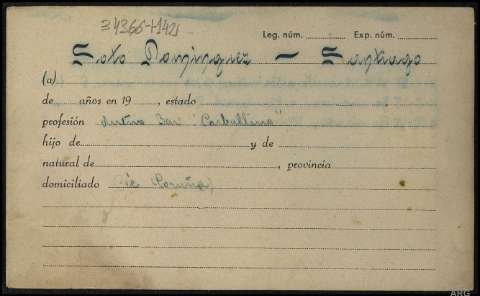 34366+1421
Leg. núm. Exp. núm.
Soto Domínguez — Santiago
(a)
de años en 19 , estado
profesión Bar "Carballino"
hijo de y de
natural de , provincia
domiciliado (Coruña)
ARG